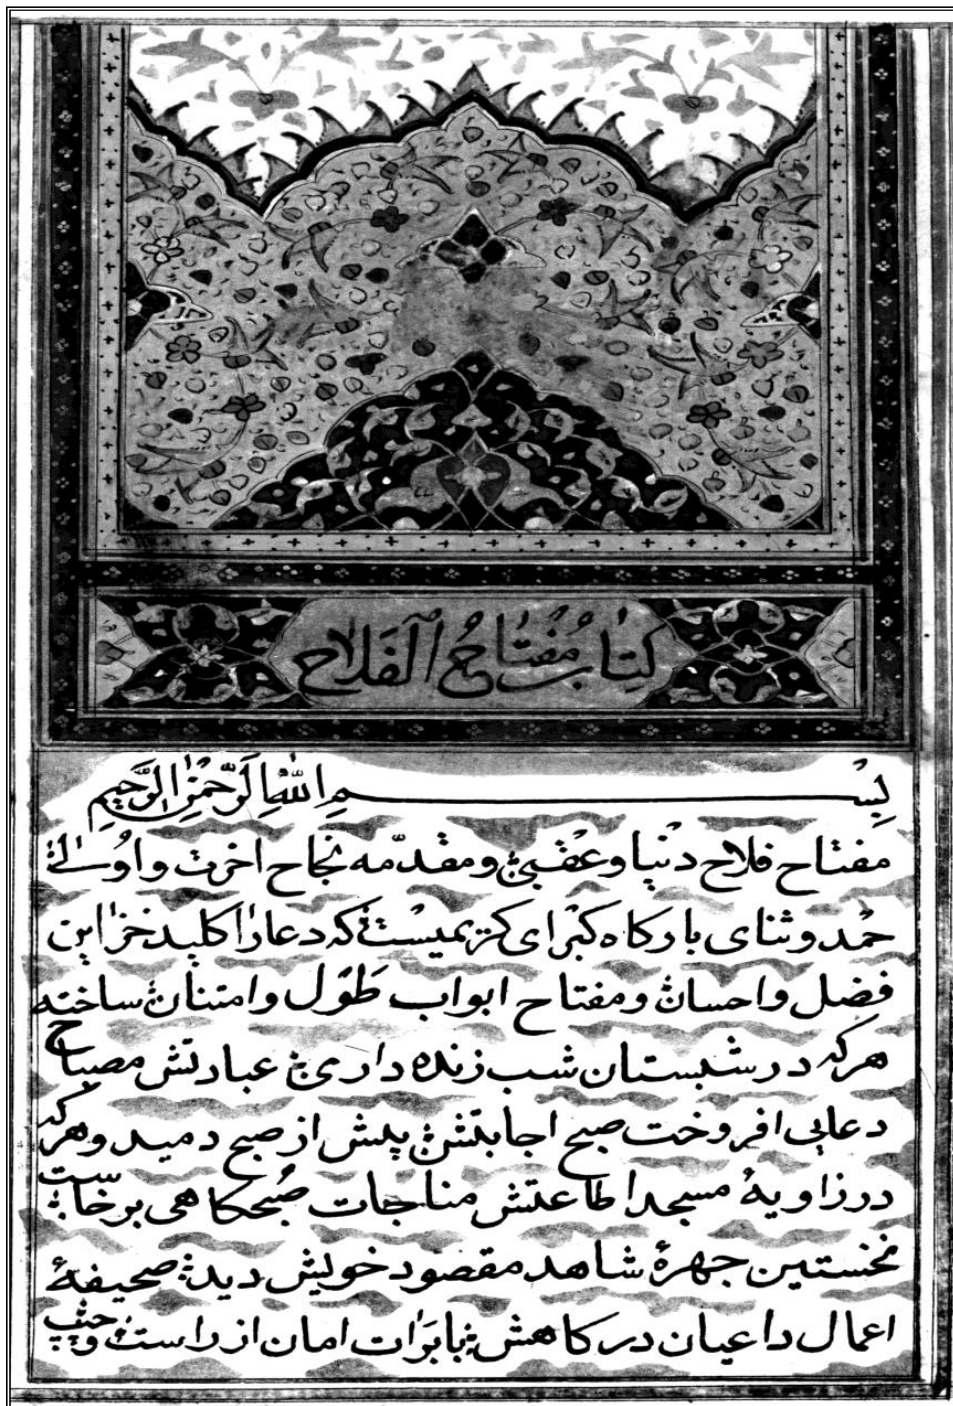 كِتٰابُ مُفتٰاحُ الفَلاٰح
بِسْمِ اللّٰهِ الرَّحْمٰنِ الرَّحِيمِ
مفتاح فلاح دنيا وعقبى ومقدّمه نجاح اخرت واوُلىٰ
حمْد وثناى باركاه كبراى كريميست كه دعارا كليد خزاين
فضل واحسان ومفتاح ابواب طَوْل وامتنان ساخته
هركه در شبستان شب زنده دارى عبادتش مصباح
دعايى افروخت صبح اجابتش پيش از صبح دميد وهركه
در زاويهٔ مسجد اطاعتش مناجات صُبحكاهى برخاست
نخستين جهرهٔ شاهد مقصود خويش ديد صحيفهٔ
اعمال داعيان دركاهش بابرَات امان از راست وچپ